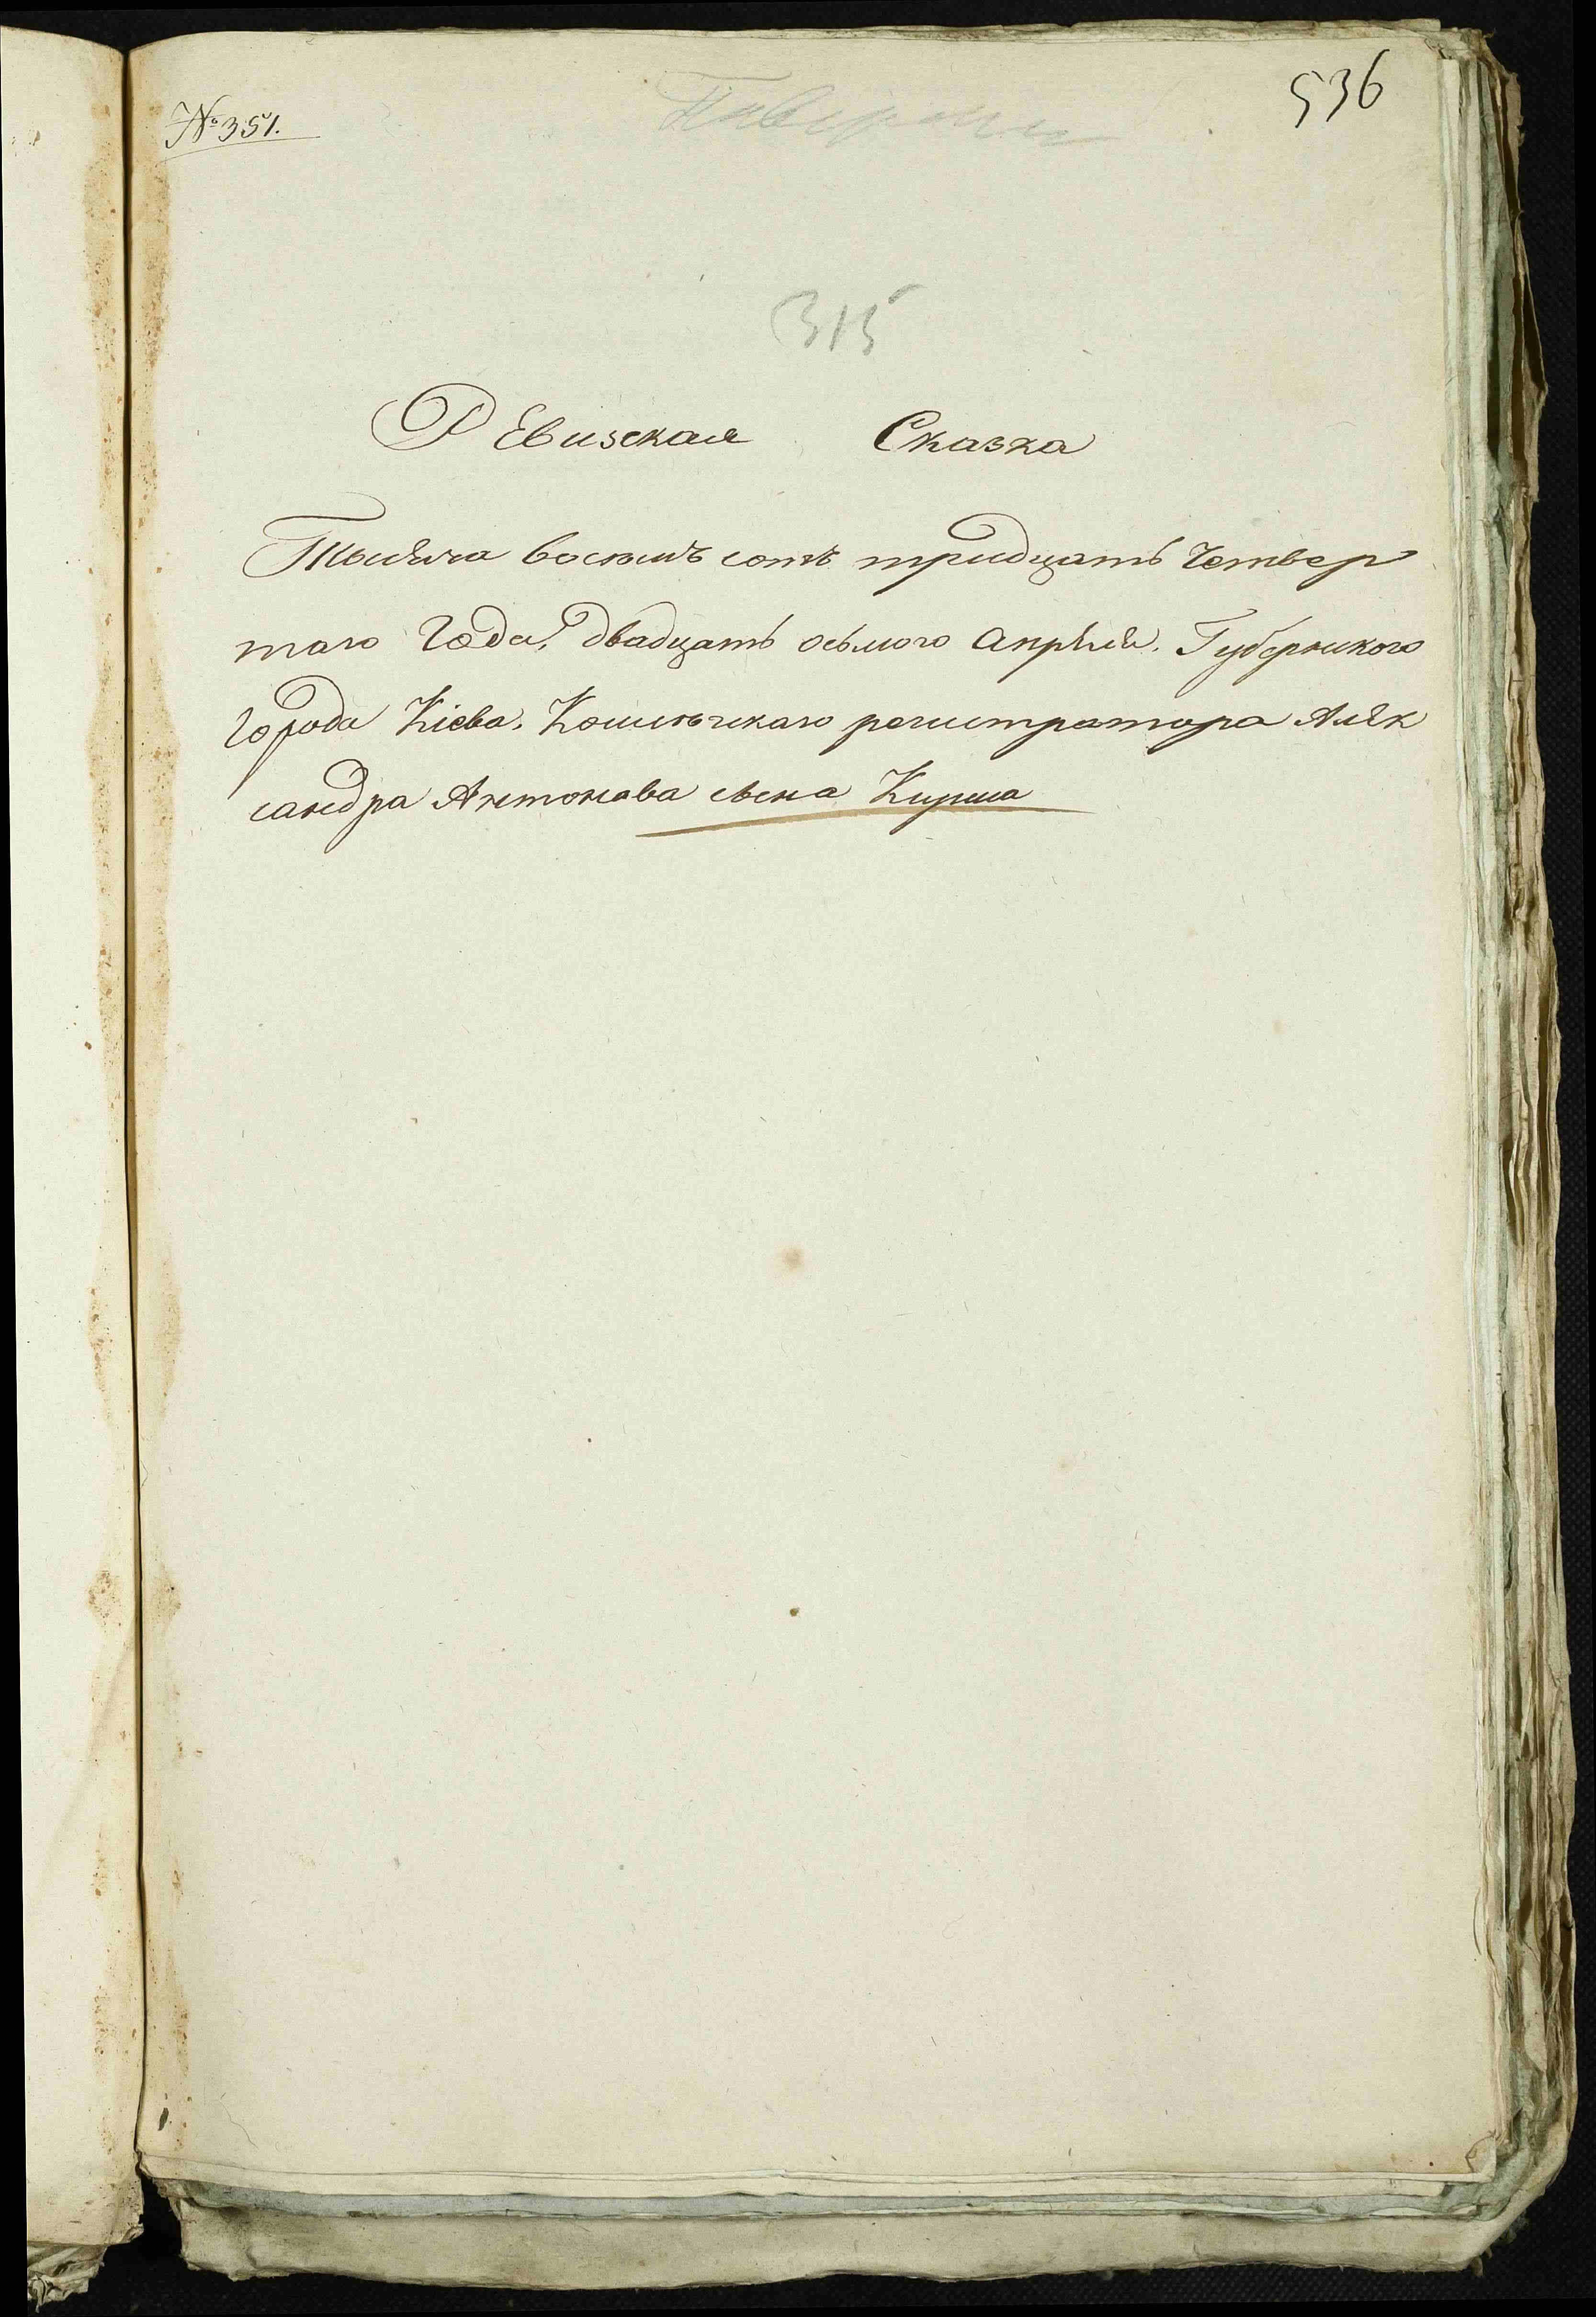 № 351.
536
315
Ревизская Сказка
Тысяча восемъ сотъ тридцать четвер
таго Года, двадцать осьмого апрѣля. Губернского
Города Кіева, Колѣжскаго регистратора Алек
сандра Антонава сына Кирша